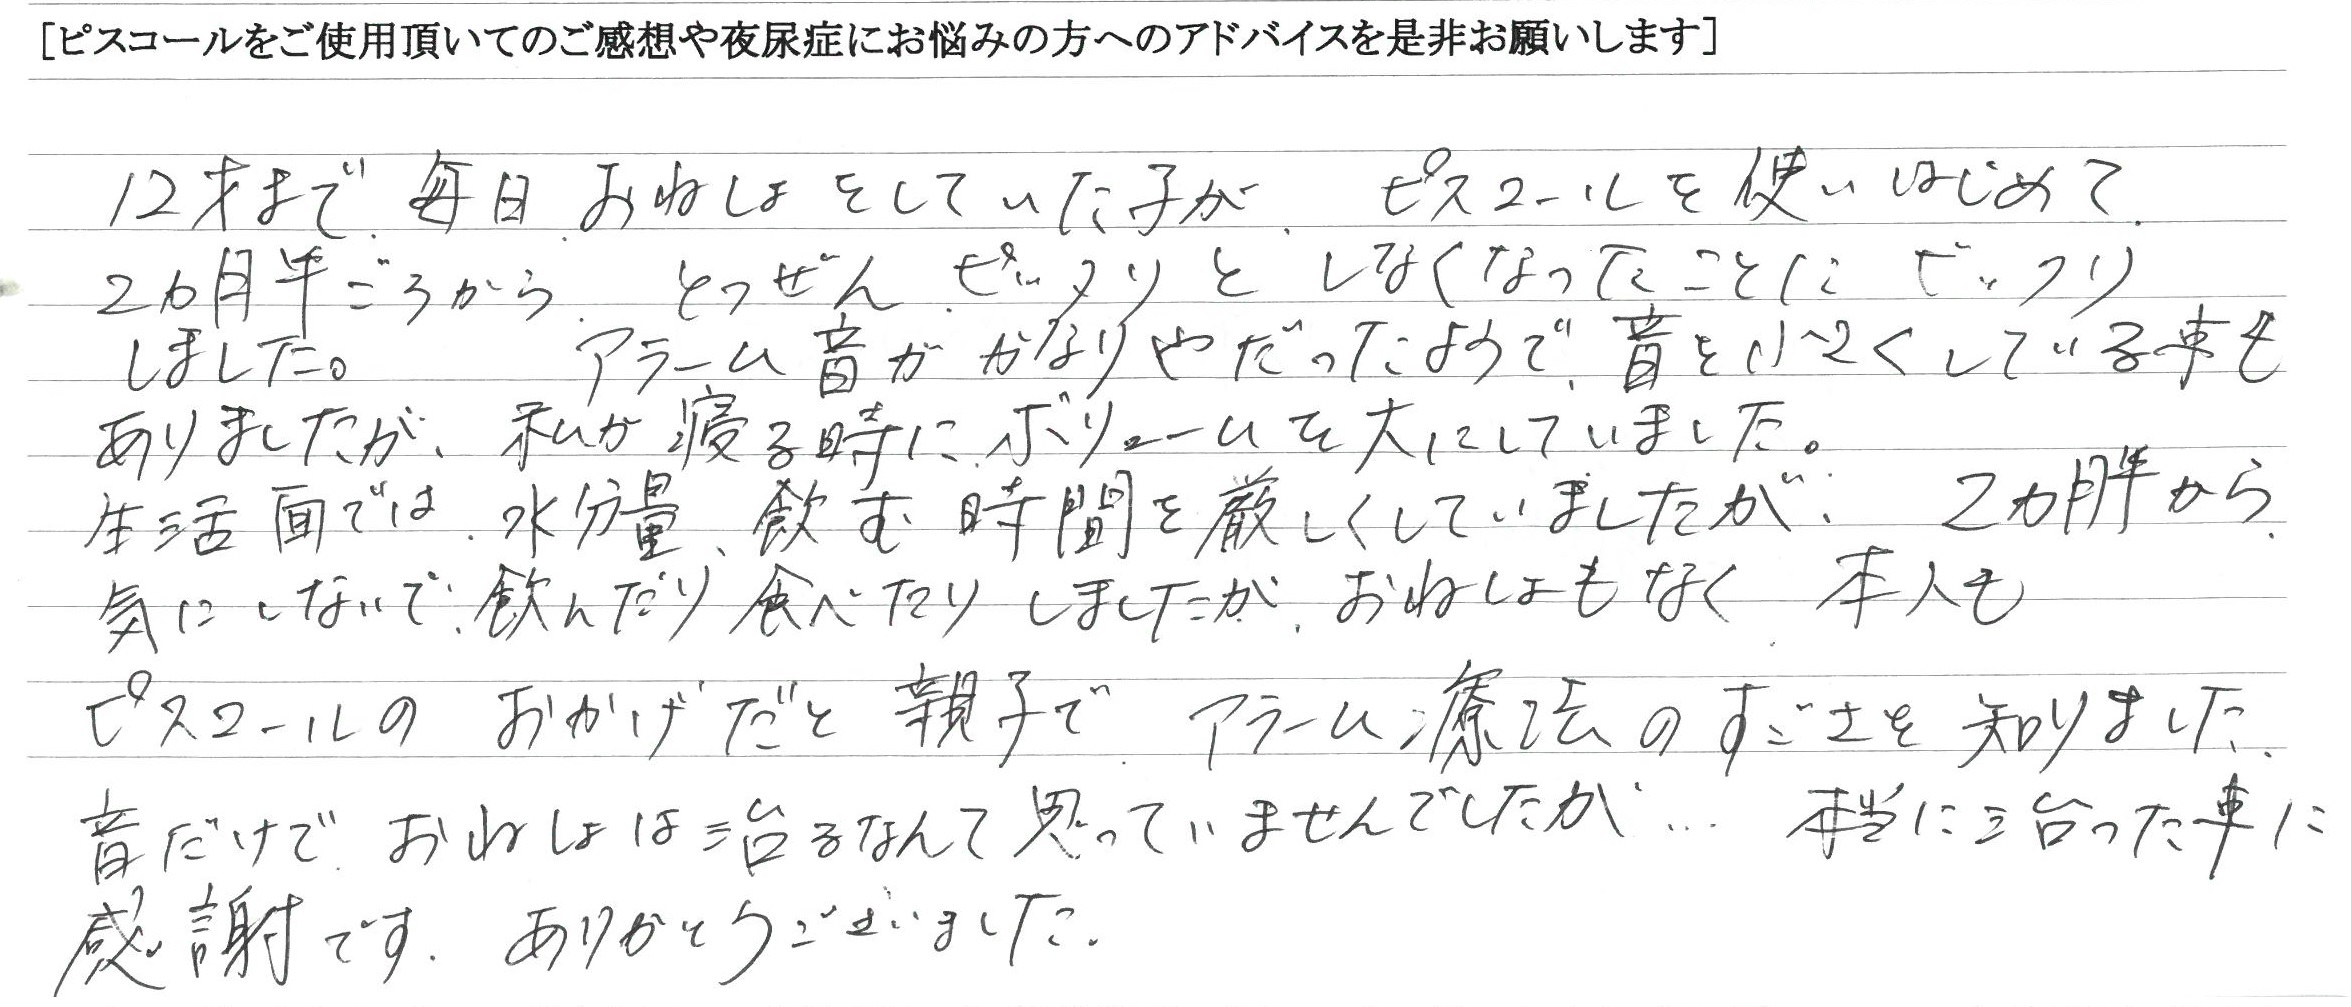 [ピスコールをご使用頂いてのご感想や夜尿症にお悩みの方へのアドバイスを是非お願いします]
12才まで、毎日、おねしょをしていた子が、ピスコールを使いはじめて、
2カ月半ごろから、とつぜん、ピッタリとしなくなったことにビックリ
しました。 アラーム音がかなりやだったようで、音を小さくしている事も
ありましたが、私が寝る時に、ボリュームを大にしていました。
生活面では、水分量、飲む時間を厳しくしていましたが、2カ月半から、
気にしないで、飲んだり、食べたりしましたが、おねしょもなく、本人も
ピスコールのおかげだと親子で、アラーム療法のすごさを知りました。
音だけで、おねしょは治るなんて思っていませんでしたが… 本当に治った事に
感謝です。ありがとうございました。